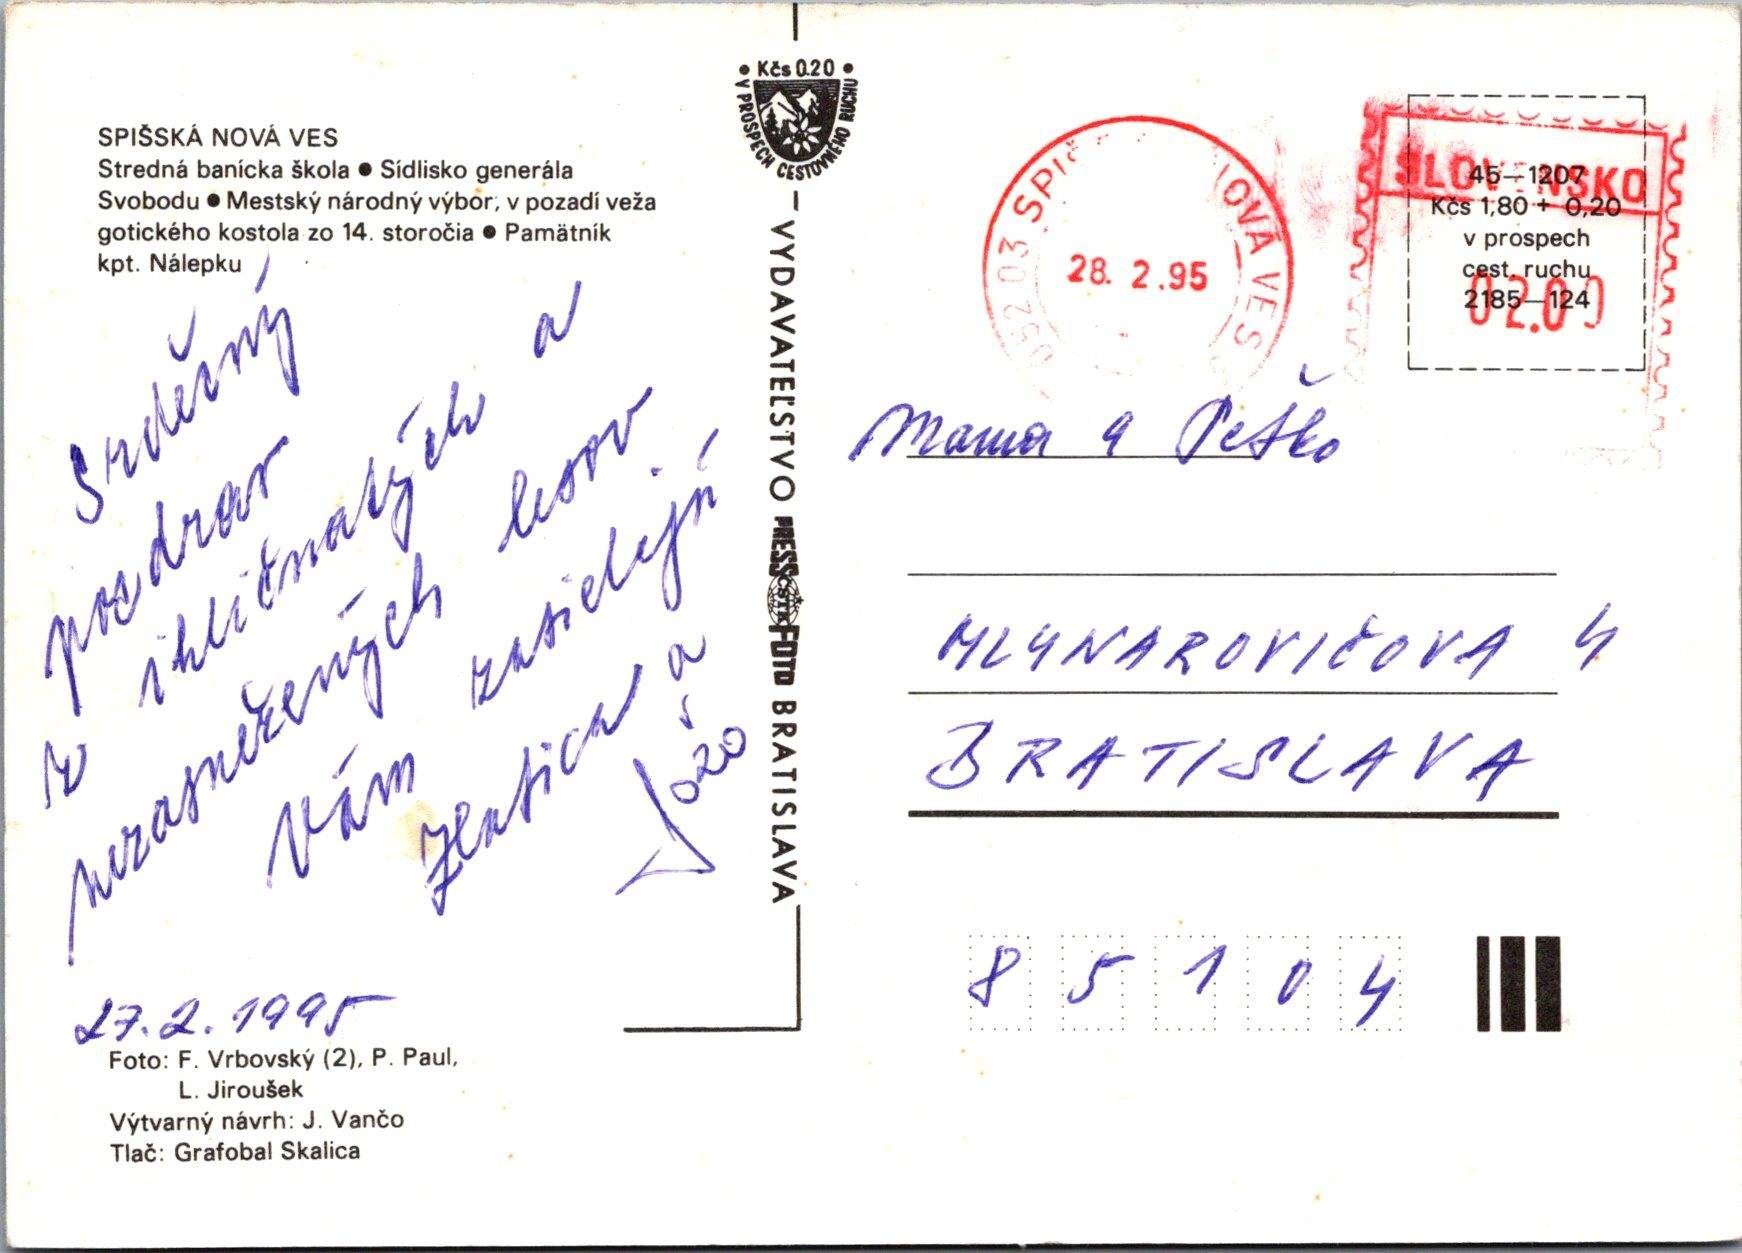 SPIŠSKÁ NOVÁ VES
Stredná banícka škola ● Sídlisko generála
Svobodu ● Mestský národný výbor, v pozadí veža
gotického kostola zo 14. storočia ● Pamätník
kpt. Nálepku
Srdečný
pozdrav
z ihličnatých a
nezasnežených lesov
Vám zasielajú
Zlatica a
Jožo
27.2.1995
Foto: F. Vrbovský (2), P. Paul,
L. Jiroušek
Výtvarný návrh: J. Vančo
Tlač: Grafobal Skalica
• Kčs 0.20 •
V PROSPECH CESTOVNÉHO RUCHU
VYDAVATEĽSTVO PRESSFOTO BRATISLAVA
ČSTK
052 03 SPIŠ OVÁ VES
28. 2.95
SLOVENSKO
02.00
45—1207
Kčs 1,80 + 0,20
v prospech
cest. ruchu
2185—124
Mama a Peťko
MLYNAROVIČOVA 4
BRATISLAVA
85104